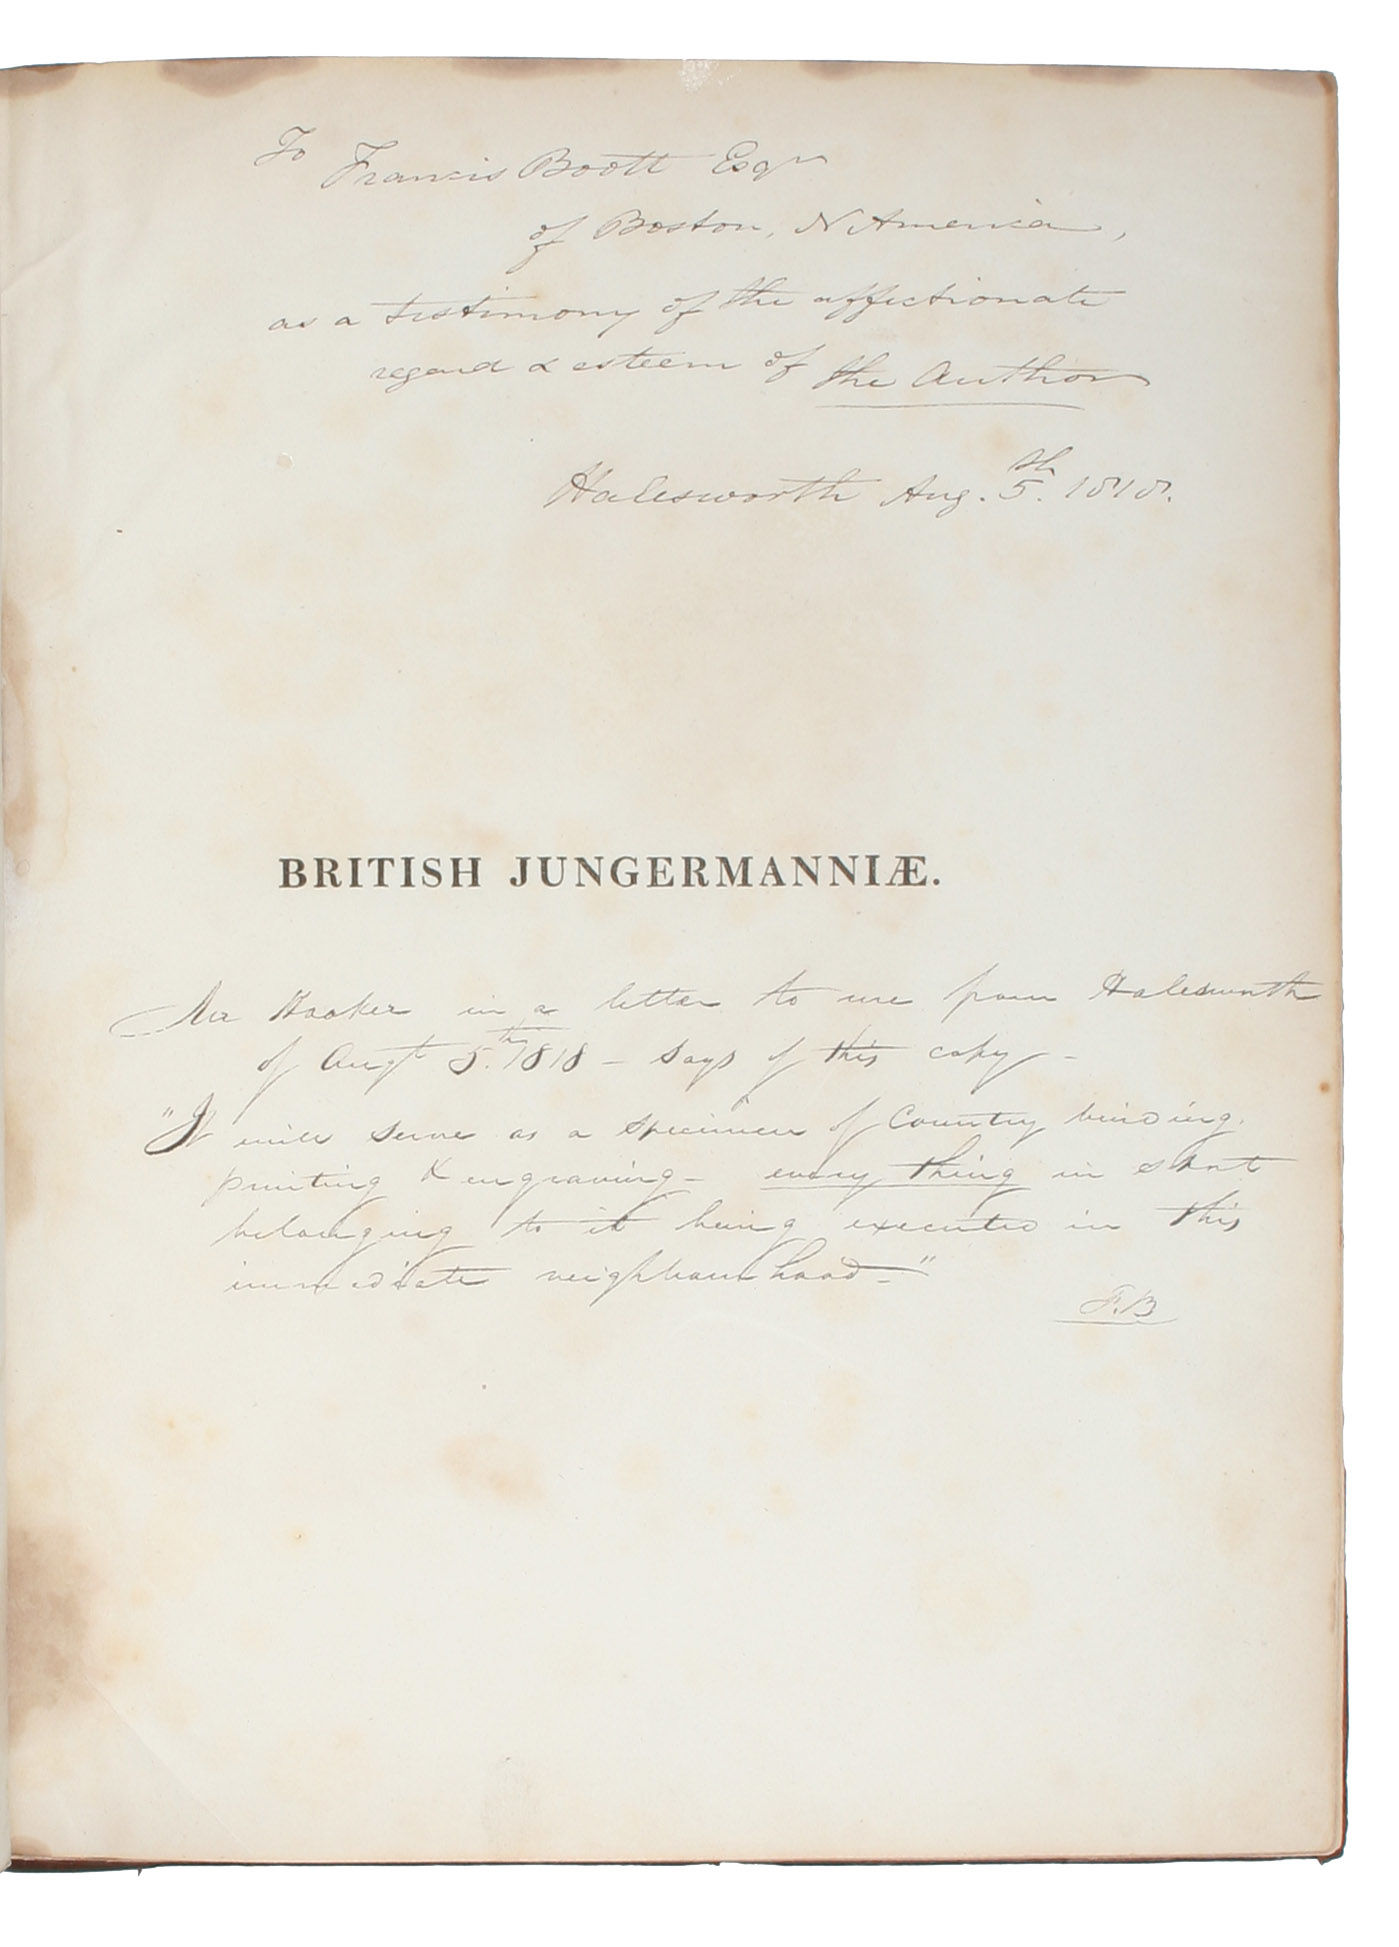 To Francis Boott Esqr
of Boston, N America,
as a testimony of the affectionate
regard & esteem of the Author
Halesworth Aug. 5th. 1818.
BRITISH JUNGERMANNIÆ.
Mr Hooker in a letter to me from Halesworth
of Augt 5th. 1818 – says of this copy –
"It will serve as a specimen of Country binding,
printing & engraving – every thing in short
belonging to it being executed in this
immediate neighbourhood –"
F.B